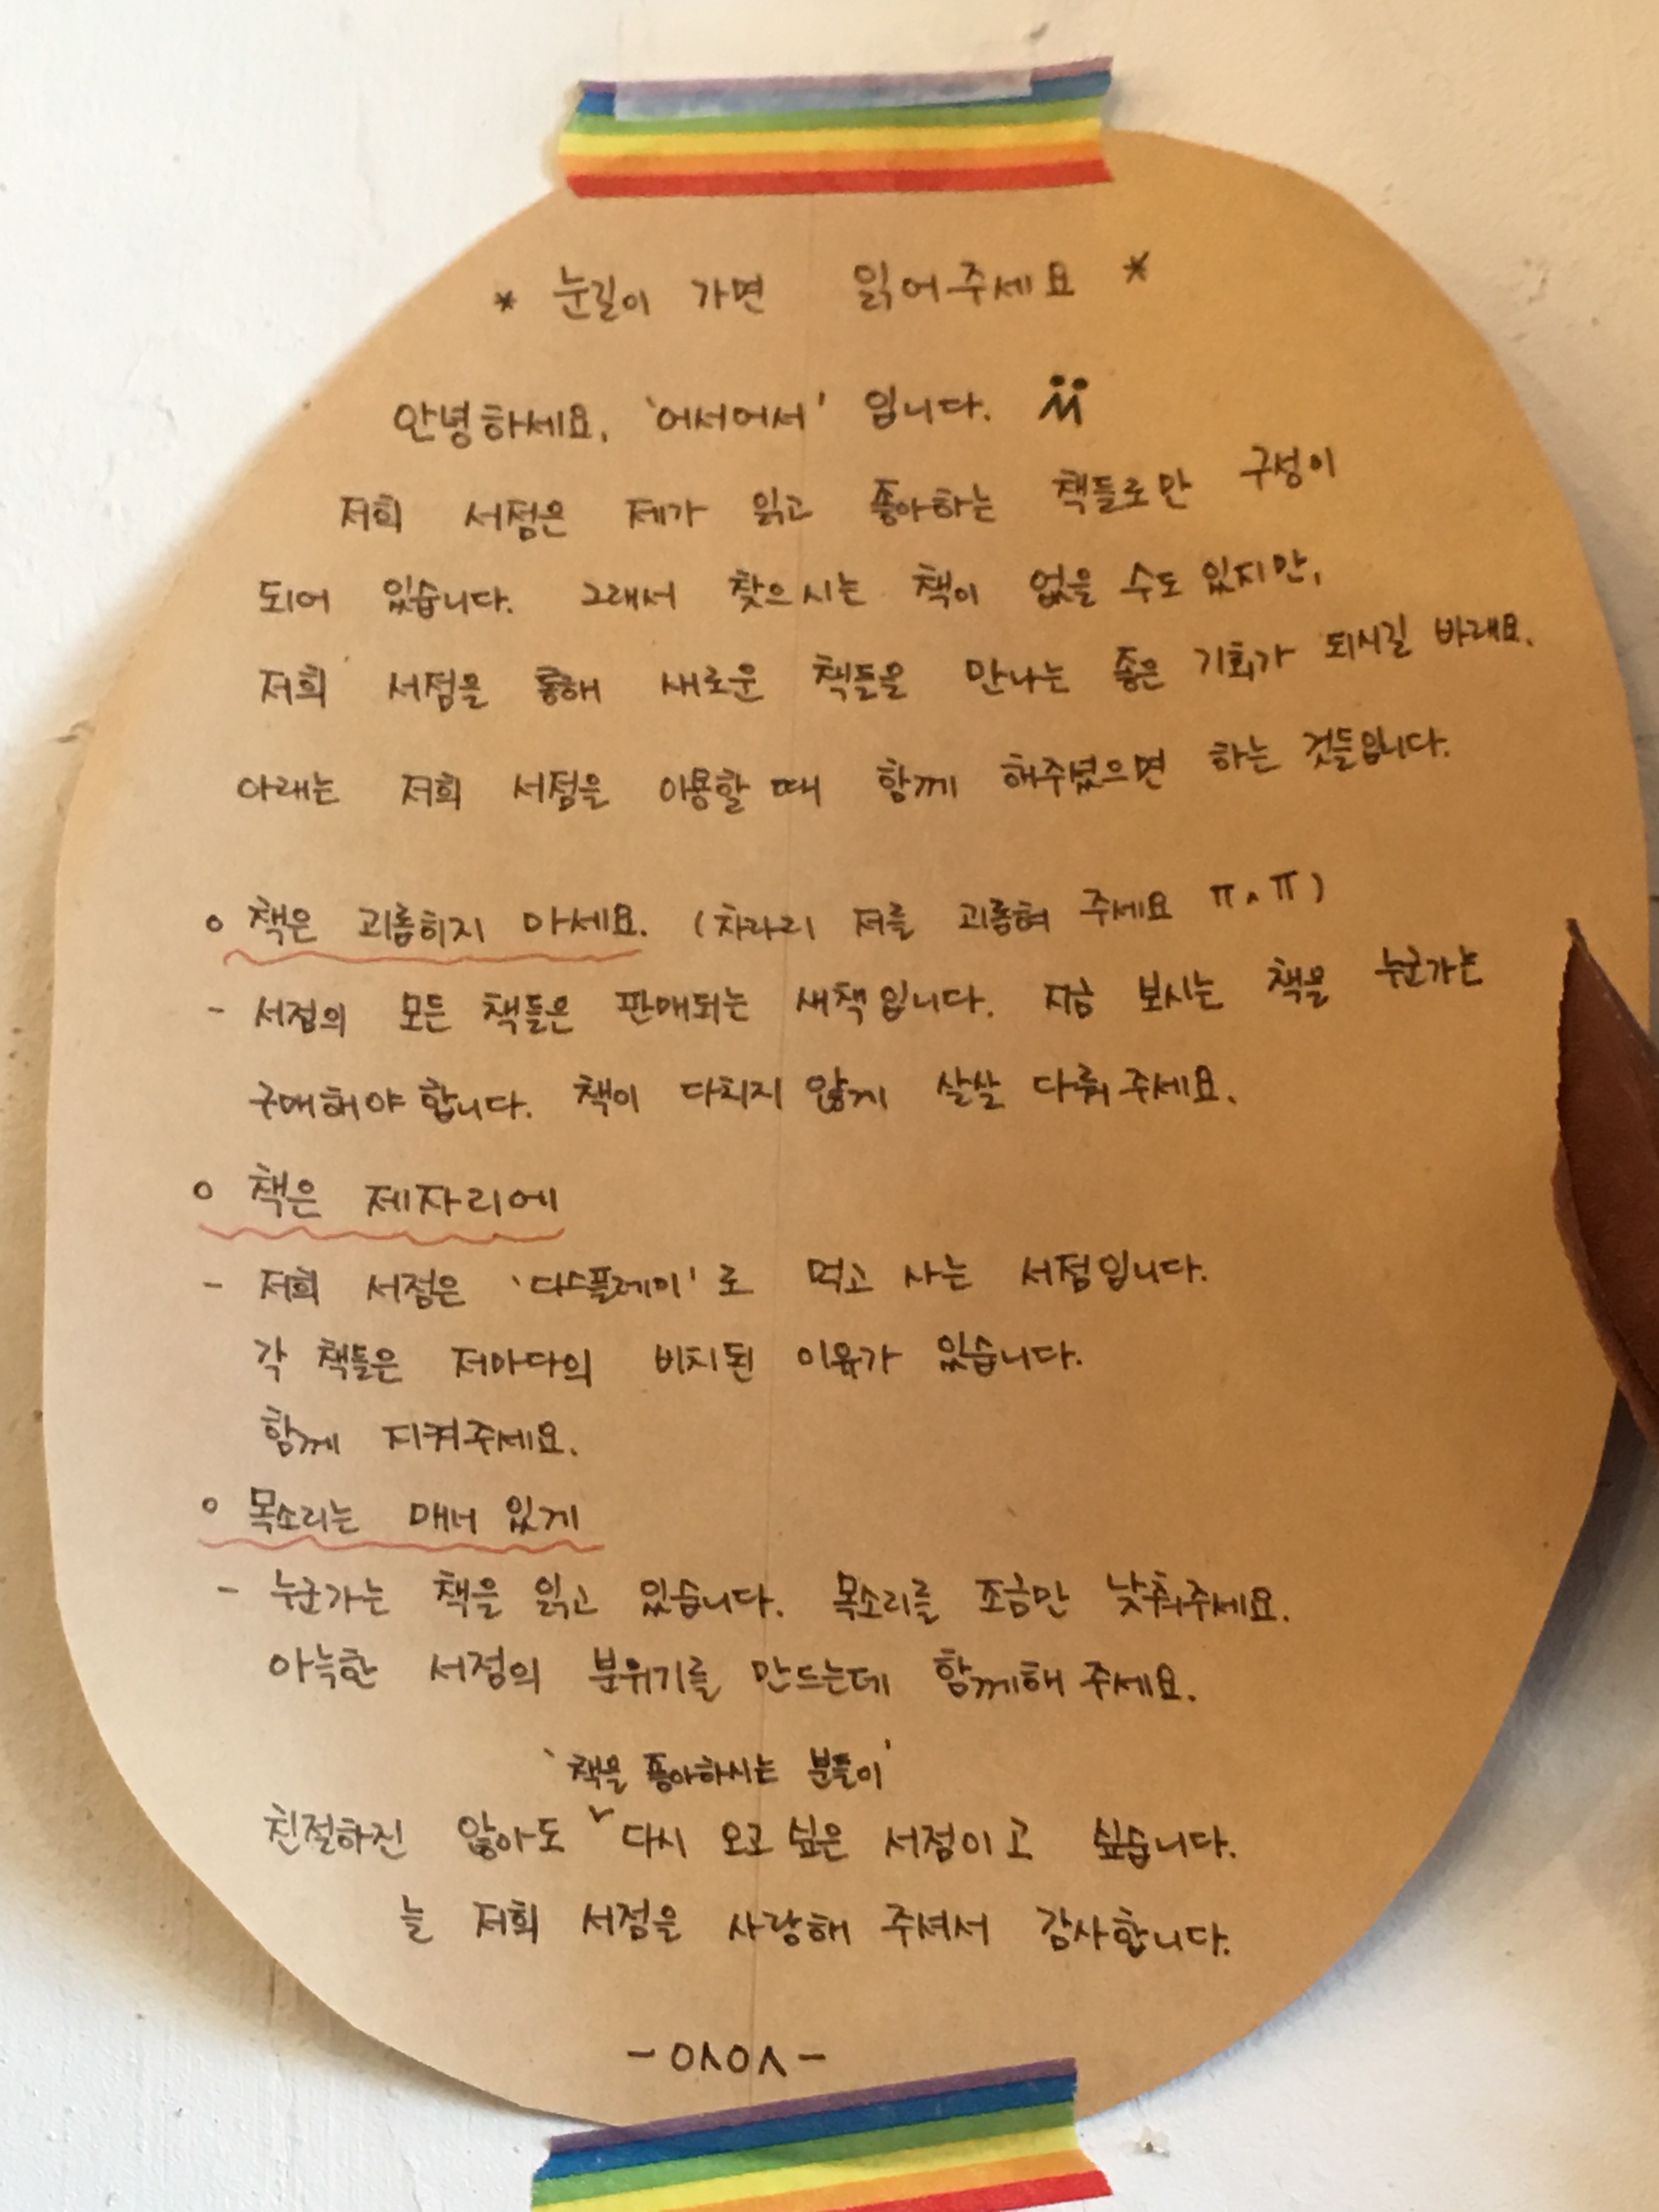 * 눈길이 가면 읽어주세요 *
안녕하세요, '어서어서' 입니다.
저희 서점은 제가 읽고 좋아하는 책들로만 구성이
되어 있습니다. 그래서 찾으시는 책이 없을 수도 있지만,
저희 서점을 통해 새로운 책들을 만나는 좋은 기회가 되시길 바래요.
아래는 저희 서점을 이용할 때 함께 해주셨으면 하는 것들입니다.
o 책은 괴롭히지 마세요. (차라리 저를 괴롭혀 주세요 ㅠ.ㅠ)
- 서점의 모든 책들은 판매되는 새책입니다. 지금 보시는 책을 누군가는
구매해야 합니다. 책이 다치지 않게 살살 다뤄주세요.
o 책은 제자리에
- 저희 서점은 '디스플레이'로 먹고 사는 서점입니다.
각 책들은 저마다의 비치된 이유가 있습니다.
함께 지켜주세요.
o 목소리는 매너 있게
- 누군가는 책을 읽고 있습니다. 목소리를 조금만 낮춰주세요.
아늑한 서점의 분위기를 만드는데 함께해 주세요.
'책을 좋아하시는 분들이'
친절하진 않아도 ˅ 다시 오고 싶은 서점이고 싶습니다.
늘 저희 서점을 사랑해 주셔서 감사합니다.
- ㅇㅅㅇㅅ -